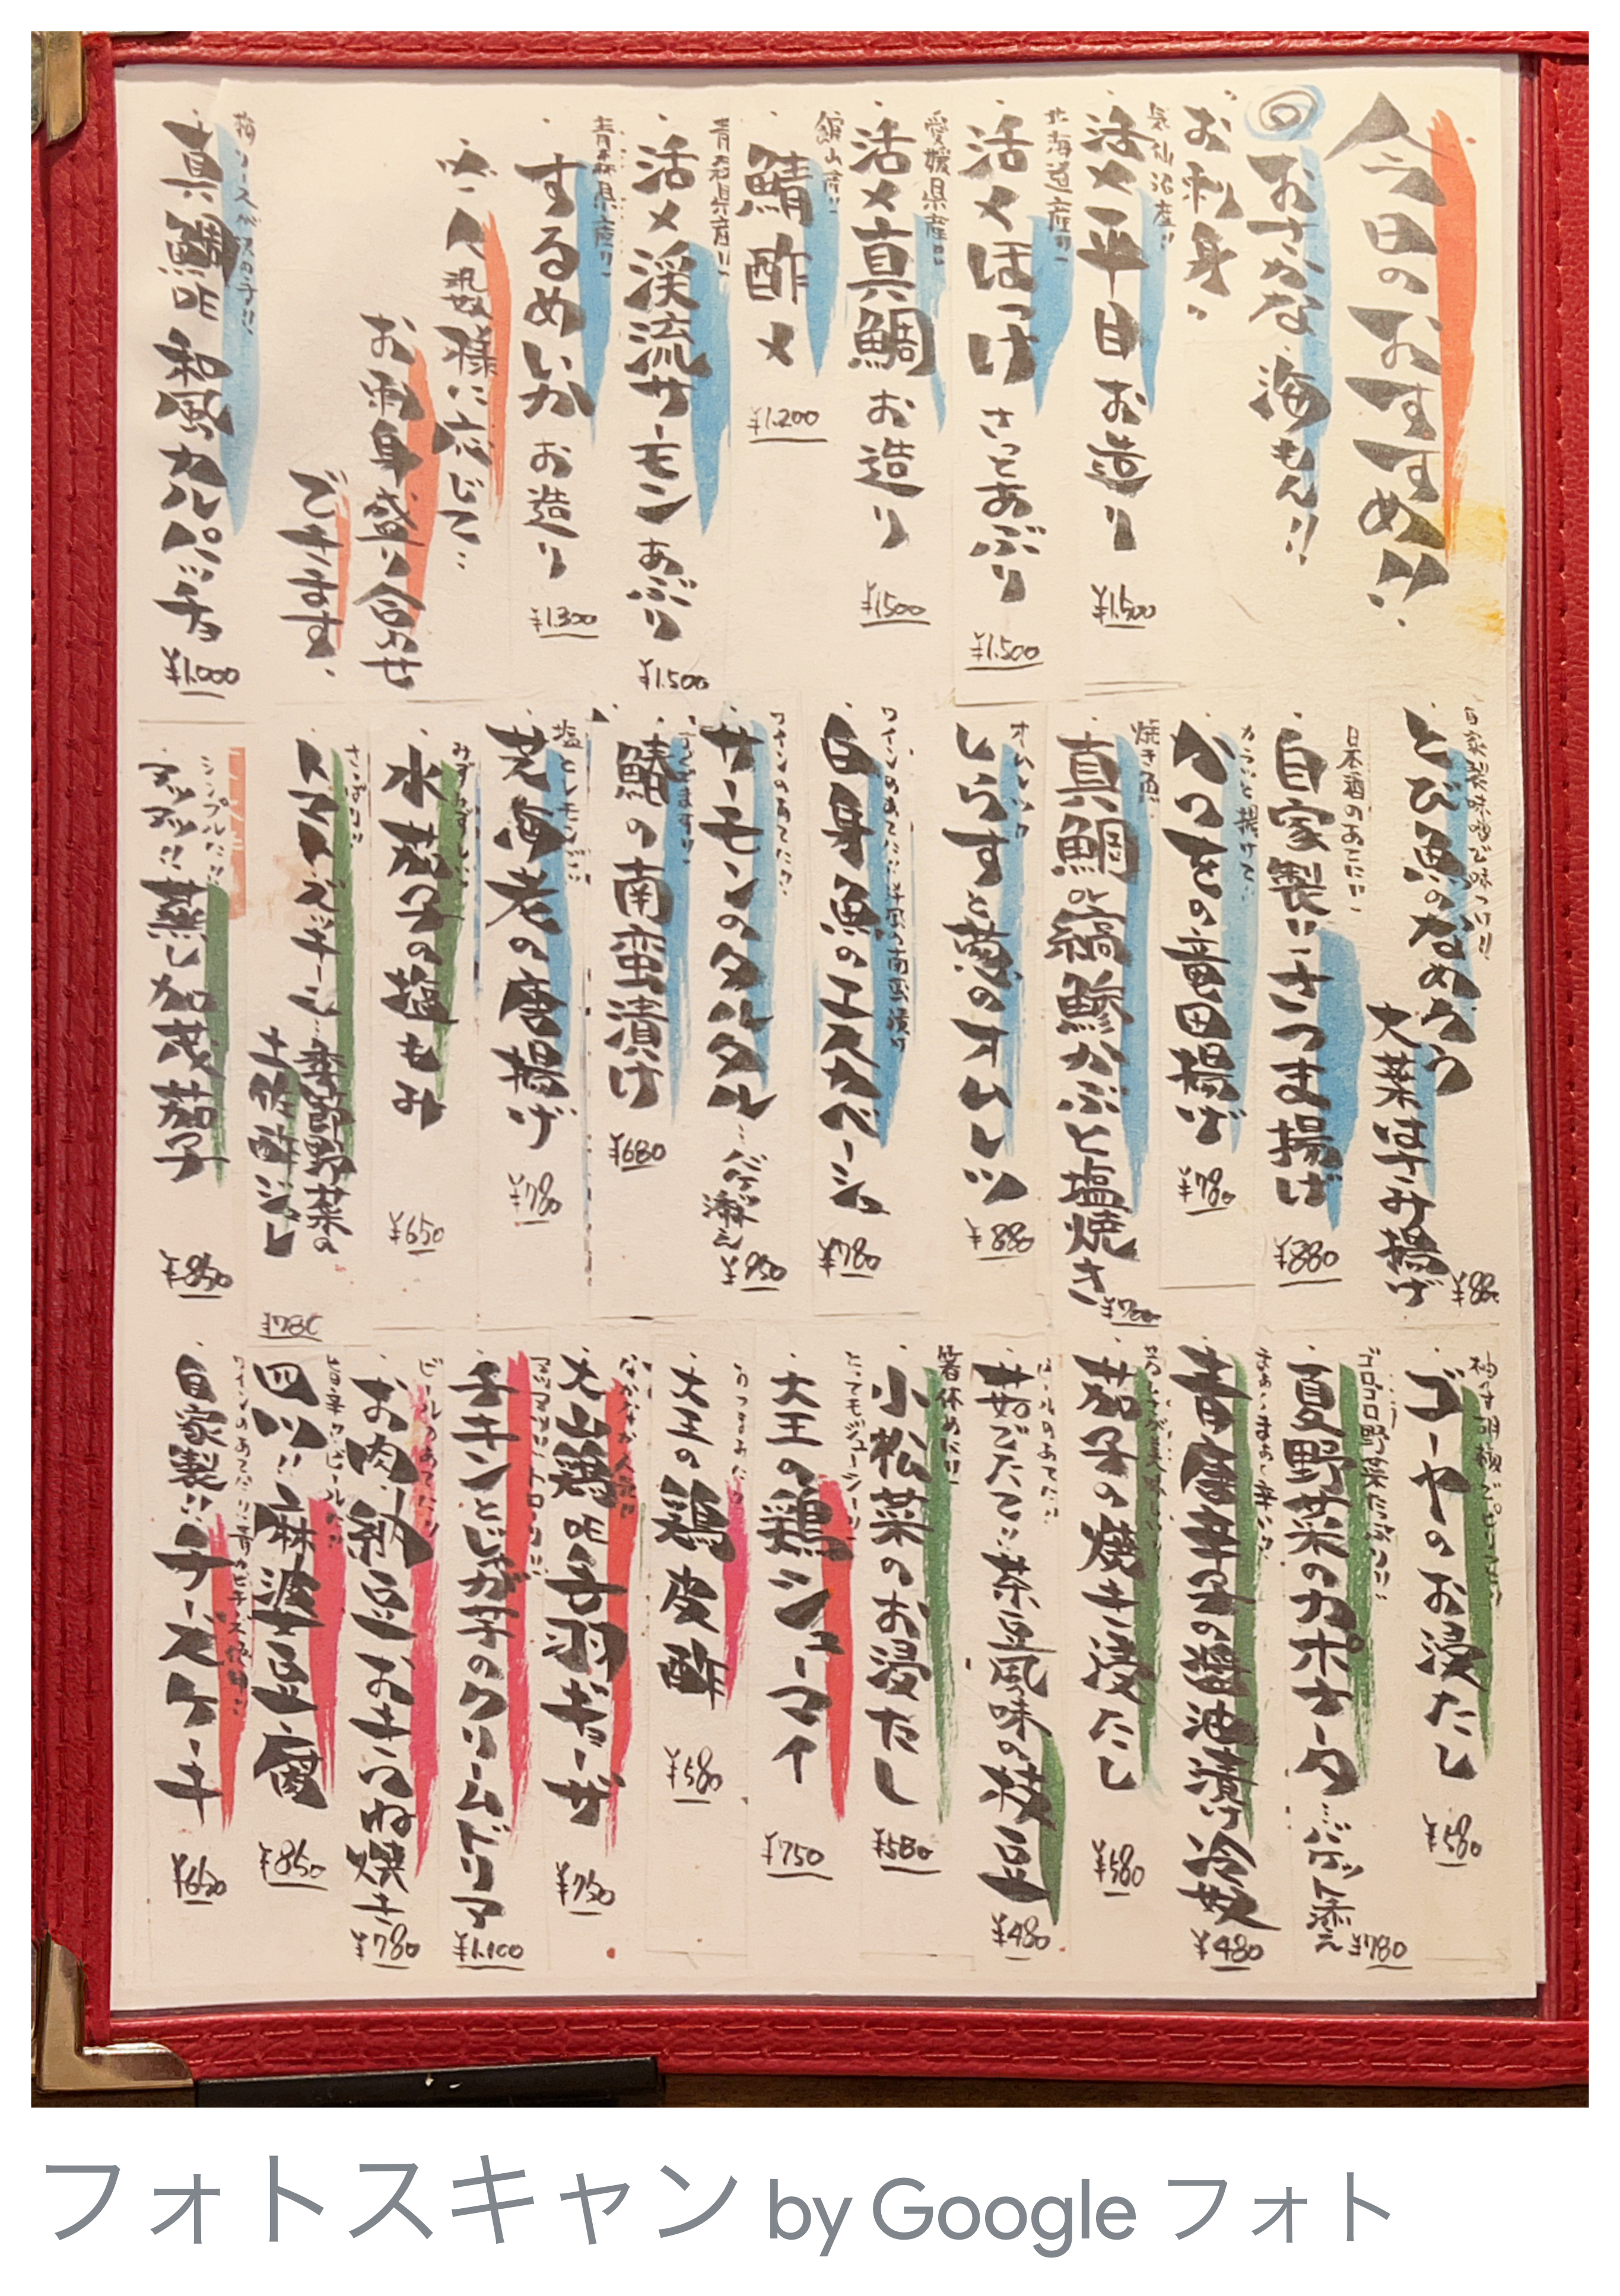 今日のおすすめ!!
おさかな 海もん!!
お刺身!!
気仙沼産!!
活〆平目 お造り ¥1,500
北海道産!!
活〆ほっけ さっとあぶり ¥1,500
愛媛県産!!
活〆真鯛 お造り ¥1,500
館山産!!
鯖 酢〆 ¥1,200
青森県産!!
活〆渓流サーモン あぶり ¥1,500
青森県産!!
するめいか お造り ¥1,300
応じて…
お刺身盛り合わせ
できます。
真鯛の和風カルパッチョ ¥1,000
自家製味噌で味つけ!!
とび魚のなめろう
大葉はさみ揚げ
日本酒のあてに!!
自家製!!さつま揚げ ¥880
カラッと揚げて!!
かつをの竜田揚げ ¥780
焼き魚!!
真鯛or縞鯵かぶと塩焼き ¥780
オムレツ
しらすと葱のオムレツ ¥880
ワインのあてに!!洋風の南蛮漬け
白身魚のエスカベーシュ ¥780
ワインのあてに!!
サーモンのタルタル…バゲット添え
鯵の南蛮漬け ¥680
塩とレモンで!!
芝海老の唐揚げ ¥780
水茄子の塩もみ ¥650
さっぱり!!
季節野菜の
土佐酢ジュレ
シンプルに!!
アツアツ!!蒸し加茂茄子
柚子胡椒でピリッと!!
ゴーヤのお浸たし ¥580
ゴロゴロ野菜たっぷり!!
夏野菜のカポナータ…バゲット添え ¥780
青唐辛子の醤油漬け冷奴 ¥480
茄子の焼き浸たし ¥580
ビールのあてに!!
茹でたて!!茶豆風味の枝豆 ¥480
箸休めに!!
小松菜のお浸たし ¥580
とってもジューシー!!
大王の鶏シューマイ ¥750
おつまみに!!
大王の鶏皮酢 ¥580
なかなか人気!!
大山鶏の手羽ギョーザ ¥750
チキンとじゃが芋のクリームドリア ¥1,100
ビールのあてに!!
お肉納豆おきつね焼き ¥780
旨辛でビール!!
四川!!麻婆豆腐 ¥850
自家製!!チーズケーキ ¥650
フォトスキャン by Google フォト